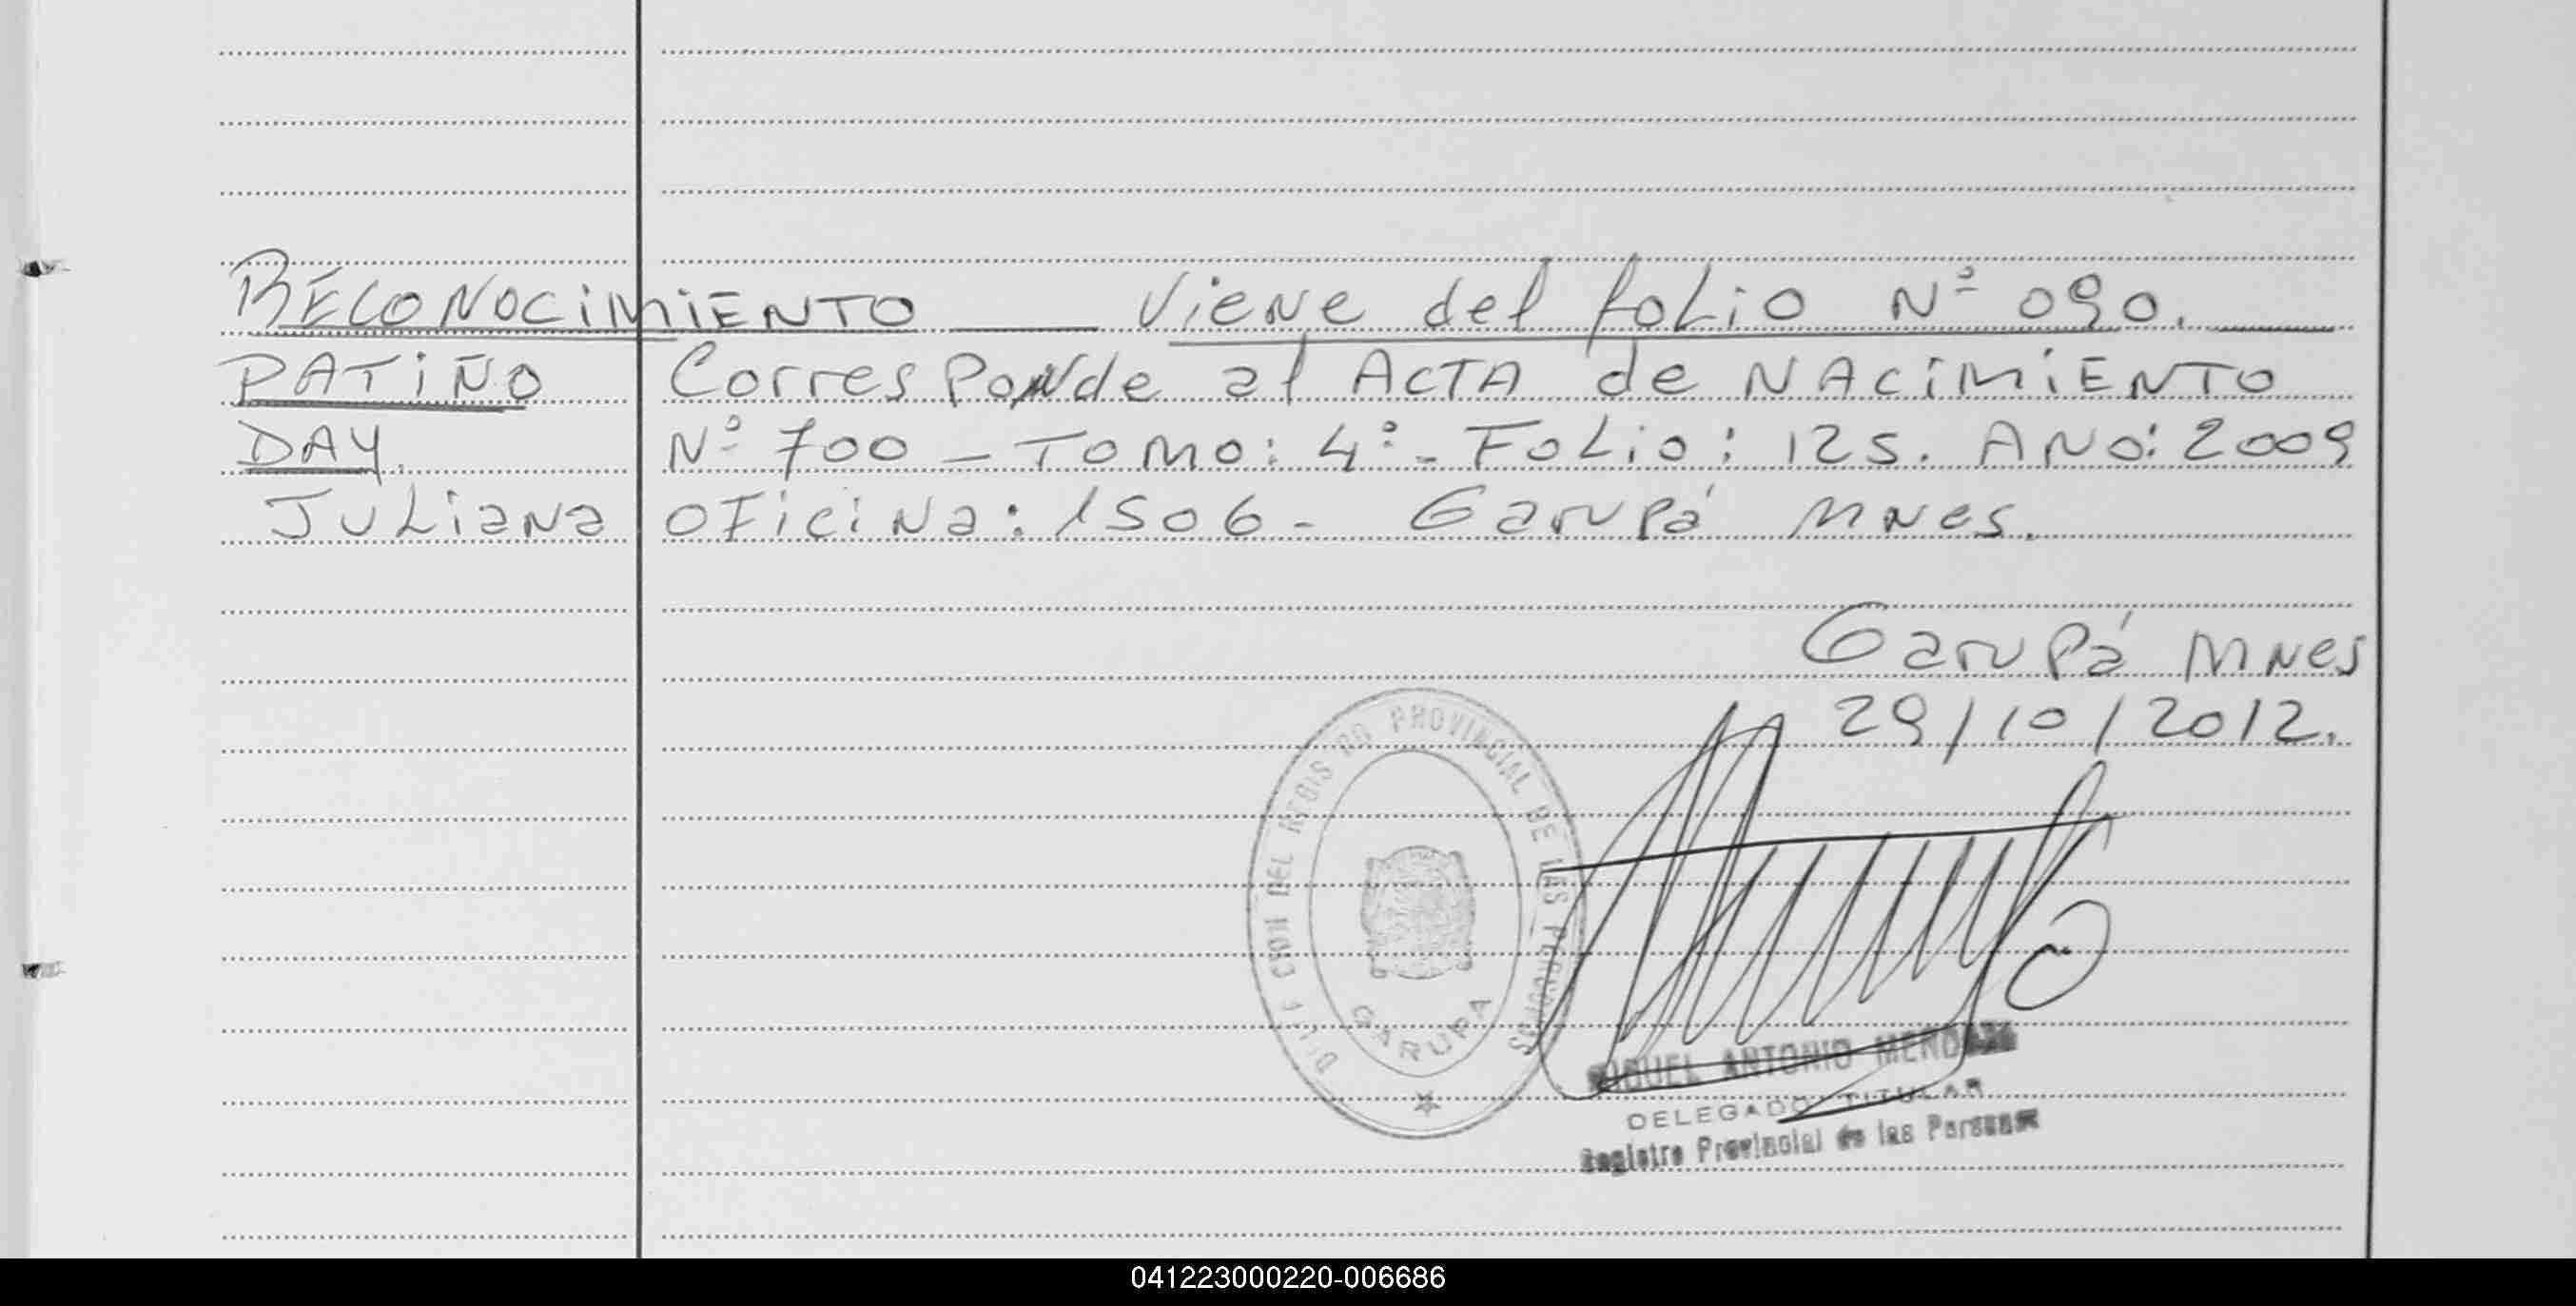 RECONOCIMIENTO — Viene del folio Nº 090.
PATIÑO Corresponde al ACTA de NACIMIENTO
DAY. Nº 700 - TOMO: 4º - FOLIO: 125. AÑO: 2009
Juliana OFICINA: 1506 - Garupá Mnes.
Garupá Mnes
29/10/2012.
DEL REGISTRO PROVINCIAL DE LAS PERSONAS
GARUPA
MIGUEL ANTONIO
DELEGADO TITULAR
Registro Provincial de las Personas
041223000220-006686